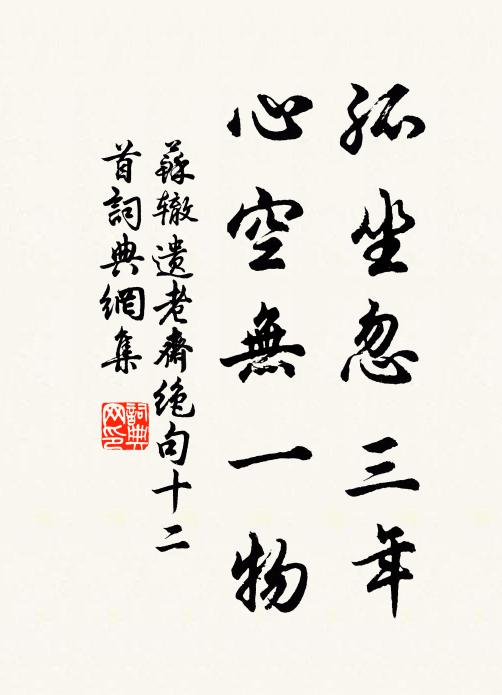 孤坐忽三年
心空無一物
蘇轍遺老齋絶句十二
首詞典網集
詞典
网印